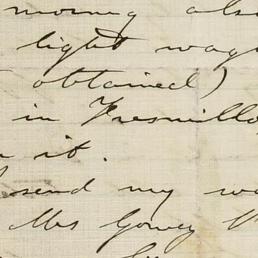 morning also
light wag
obtained)
in Fresnillo
it.
send my wa
Mrs Gowey